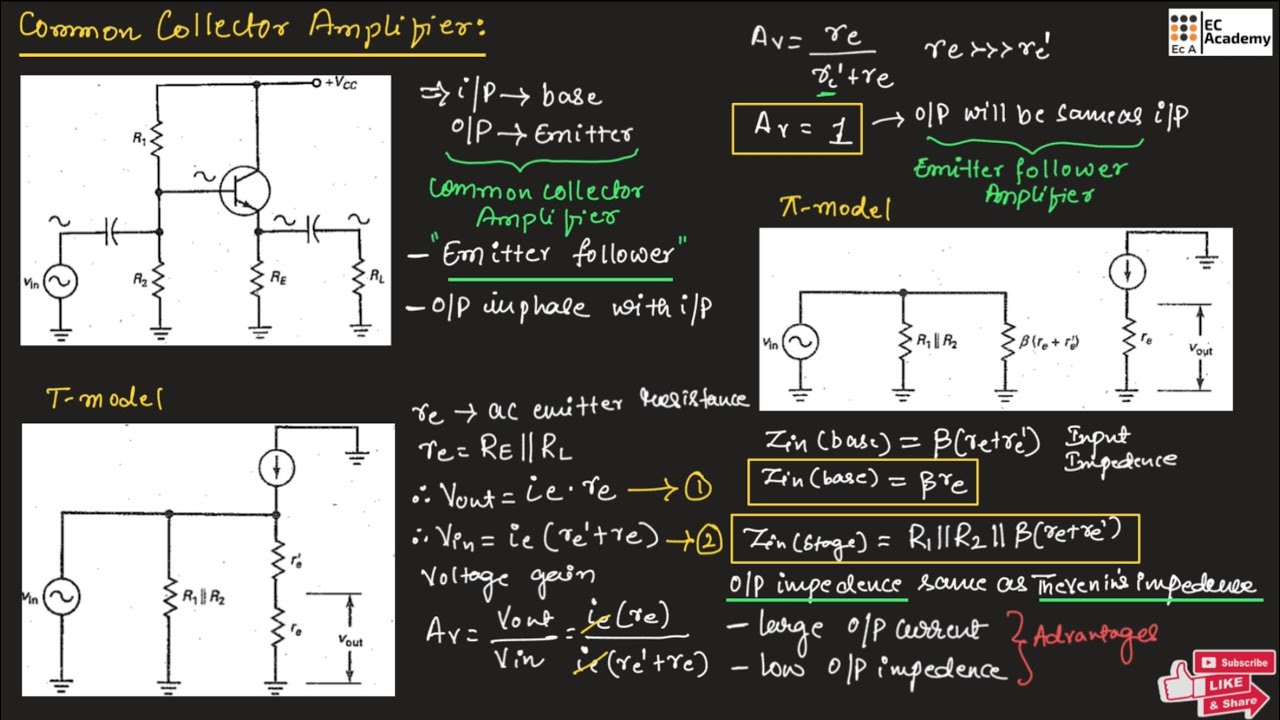 Common Collector Amplifier:
EC
Academy
Ec A
+VCC
R1
R2
RE
RL
Vin
⇒ i/P → base
O/P → Emitter
Common collector
Amplifier
- "Emitter follower"
- O/P inphase with i/P
Av = re / (re'+re) re >>> re'
Av = 1 → O/P will be same as i/P
Emitter follower
Amplifier
π-model
Vin
R1 || R2
β(re + r'e)
re
Vout
T-model
Vin
R1 || R2
r'e
re
Vout
re → ac emitter resistance
re = RE || RL
∴ Vout = ie · re → ①
∴ Vin = ie (re'+re) → ②
Voltage gain
Av = Vout / Vin = ie (re) / ie (re'+re)
Zin (base) = β(re+re') Input
Impedence
Zin (base) = βre
Zin (stage) = R1 || R2 || β(re+re')
O/P impedence same as Thevenin's impedence
- large O/P current
- low O/P impedence
Advantages
Subscribe
LIKE
& Share